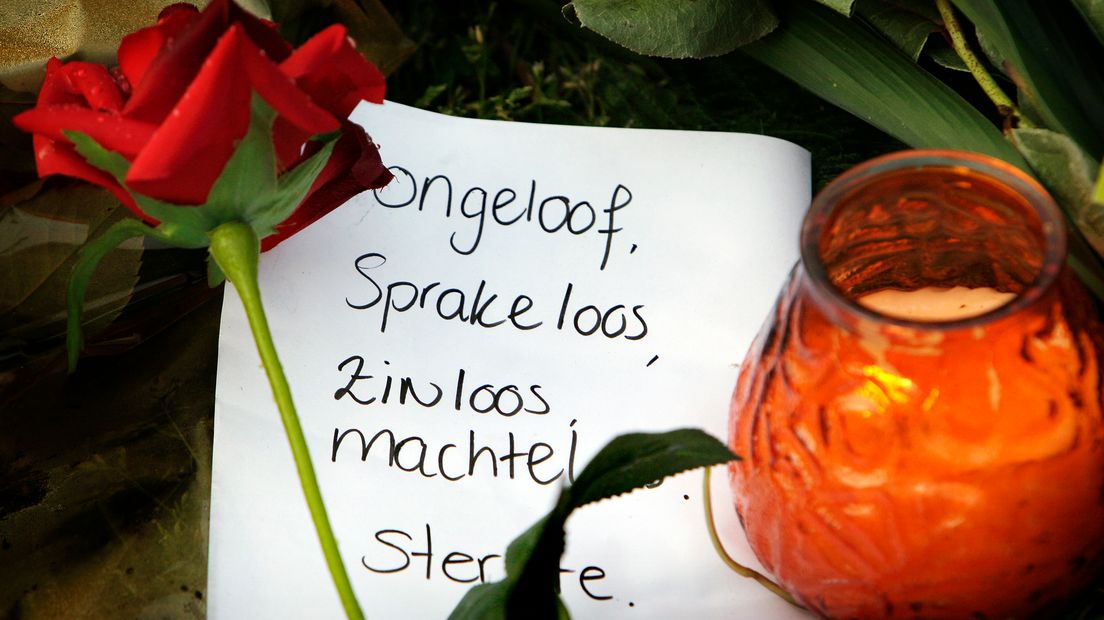 Ongeloof,
Sprakeloos,
Zinloos,
machtel .
Ster te.